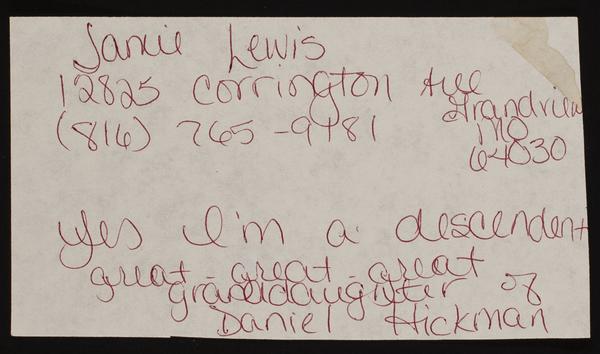 Jamie Lewis
12825 Corrington Ave
Grandview
(816) 765-9481
MO
64030
Yes I'm a descendent
great-great-great
granddaughter of
Daniel Hickman